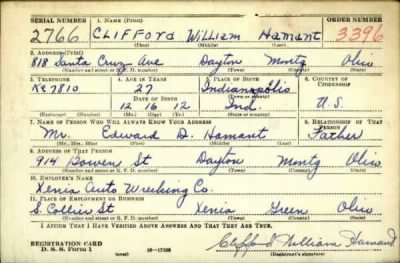 SERIAL NUMBER 1. NAME (Print) ORDER NUMBER
2766 CLIFFORD William Hamant 3396
(First) (Middle) (Last)
2. ADDRESS (Print)
818 Santa Cruz Ave Dayton Montg Ohio
(Number and street or R. F. D. number) (Town) (County) (State)
3. TELEPHONE 4. AGE IN YEARS 5. PLACE OF BIRTH 6. COUNTRY OF CITIZENSHIP
KE 7810 27 Indianapolis
DATE OF BIRTH (Town or county)
12 16 12 Ind. U.S.
(Exchange) (Number) (Mo.) (Day) (Yr.) (State or country)
7. NAME OF PERSON WHO WILL ALWAYS KNOW YOUR ADDRESS 8. RELATIONSHIP OF THAT PERSON
Mr. Edward D. Hamant Father
(Mr., Mrs., Miss) (First) (Middle) (Last)
9. ADDRESS OF THAT PERSON
914 Bowen St Dayton Montg Ohio
(Number and street or R. F. D. number) (Town) (County) (State)
10. EMPLOYER'S NAME
Xenia Auto Wrecking Co.
11. PLACE OF EMPLOYMENT OR BUSINESS
S. Collier St Xenia Green Ohio
(Number and street or R. F. D. number) (Town) (County) (State)
I AFFIRM THAT I HAVE VERIFIED ABOVE ANSWERS AND THAT THEY ARE TRUE.
REGISTRATION CARD
D. S. S. Form 1 (over) Clifford William Hamant
(Registrant's signature)